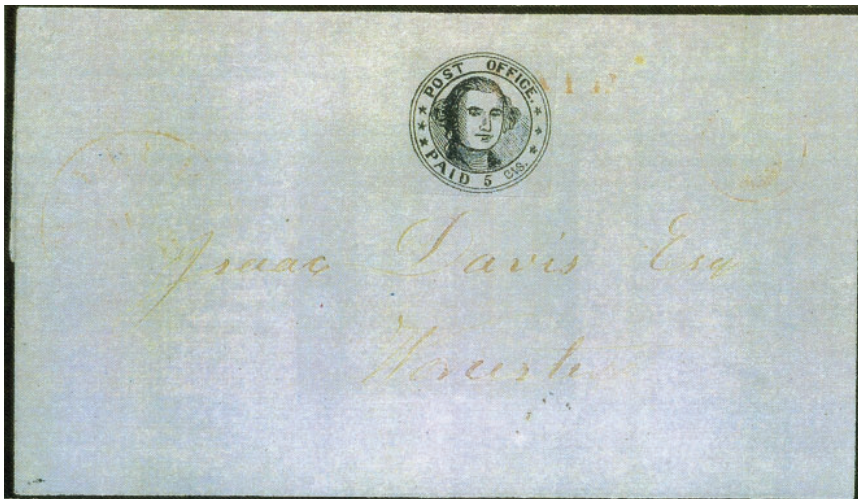 POST OFFICE.
PAID 5 CTS.
Isaac Davis Esq
Worcester